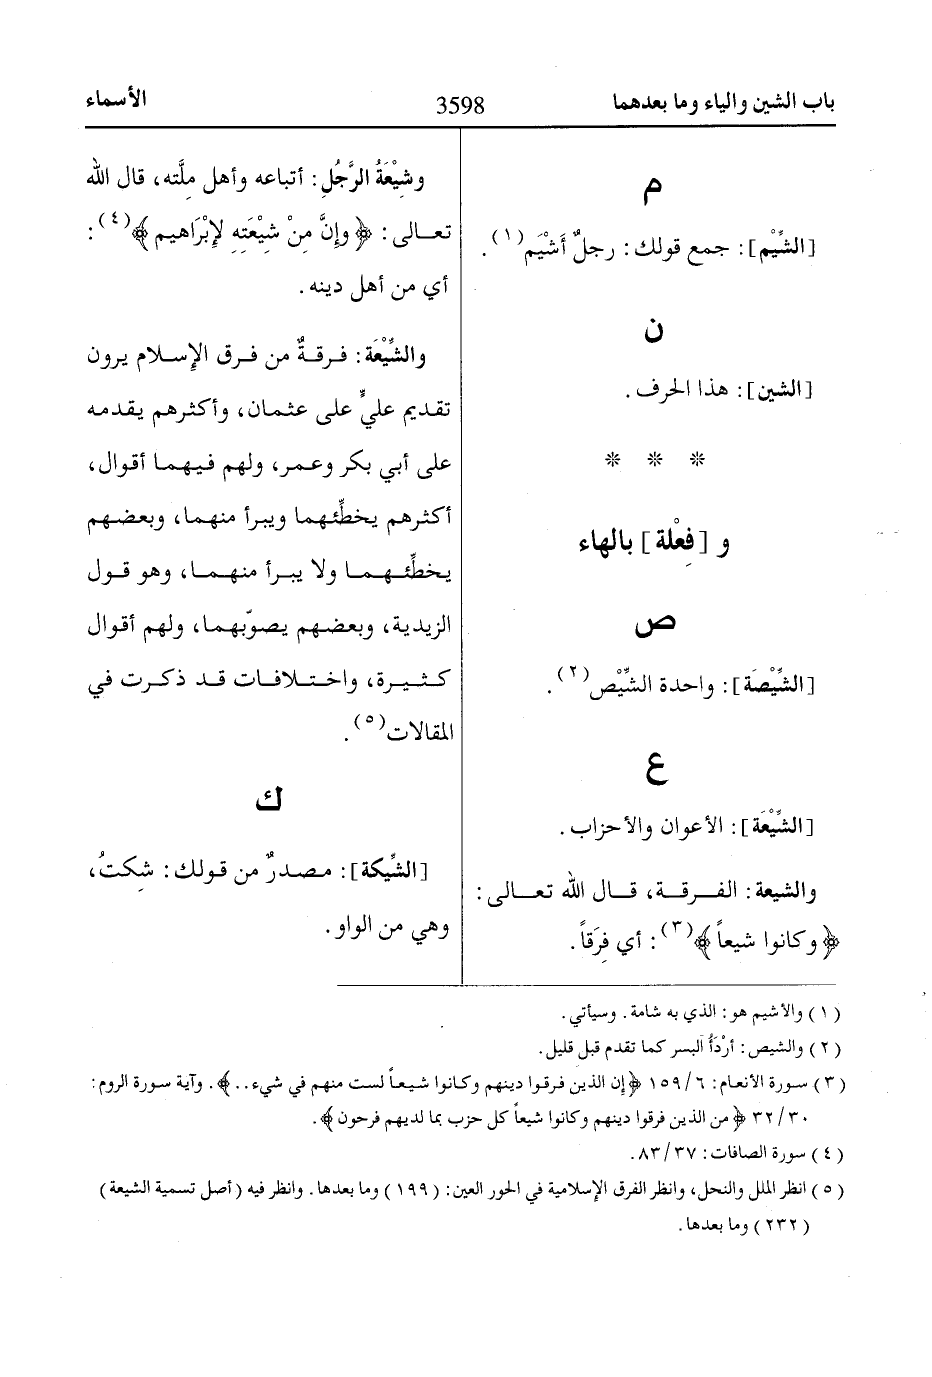 باب الشين والياء وما بعدهما
3598
الأسماء
م
[الشِّيْم]: جمع قولك: رجلٌ أَشْيَم(١).
ن
[الشين]: هذا الحرف.
* * *
و [فِعْلة] بالهاء
ص
[الشِّيْصَة]: واحدة الشِّيْص(٢).
ع
[الشِّيْعَة]: الأعوان والأحزاب.
والشيعة: الفرقة، قال الله تعالى:
﴿وكانوا شيعاً﴾(٣): أي فِرَقاً.
وشِيْعَةُ الرَّجُلِ: أتباعه وأهل ملَّته، قال الله
تعالى: ﴿وإِنَّ مِنْ شِيْعَتِهِ لإِبْرَاهيم﴾(٤):
أي من أهل دينه.
والشِّيْعَة: فرقةٌ من فرق الإسلام يرون
تقديم عليٍّ على عثمان، وأكثرهم يقدمه
على أبي بكر وعمر، ولهم فيهما أقوال،
أكثرهم يخطِّئهما ويبرأ منهما، وبعضهم
يخطِّئهما ولا يبرأ منهما، وهو قول
الزيدية، وبعضهم يصوّبهما، ولهم أقوال
كثيرة، واختلافات قد ذكرت في
المقالات(٥).
ك
[الشِّيكة]: مصدرٌ من قولك: شكتُ،
وهي من الواو.
(١) والأشيم هو: الذي به شامة. وسيأتي.
(٢) والشيص: أرْدَأُ البسر كما تقدم قبل قليل.
(٣) سورة الأنعام: ٦/١٥٩ ﴿إن الذين فرقوا دينهم وكانوا شيعاً لست منهم في شيء..﴾. وآية سورة الروم:
٣٠/٣٢ ﴿من الذين فرقوا دينهم وكانوا شيعاً كل حزب بما لديهم فرحون﴾.
(٤) سورة الصافات: ٣٧/٨٣.
(٥) انظر الملل والنحل، وانظر الفرق الإسلامية في الحور العين: (١٩٩) وما بعدها. وانظر فيه (أصل تسمية الشيعة)
(٢٣٢) وما بعدها.